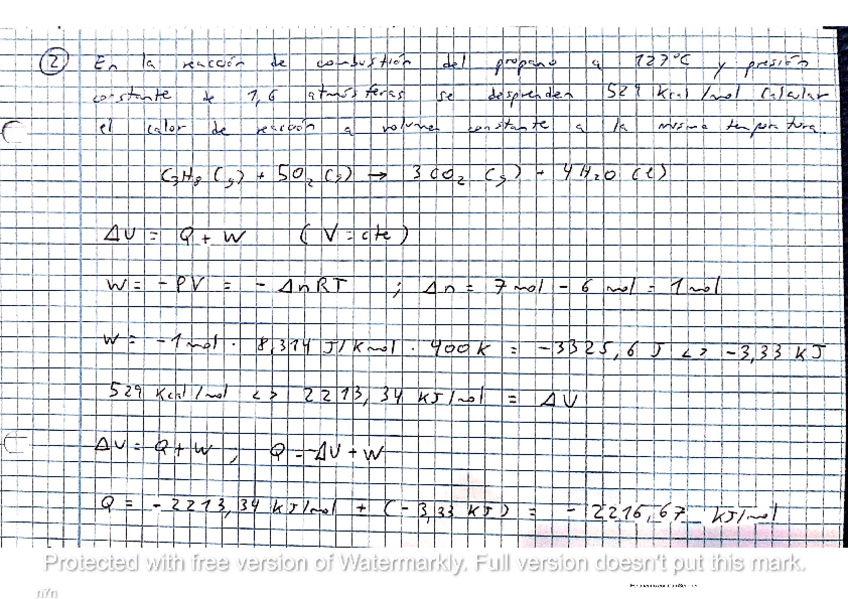 2 En la reacción de combustión del propano a 127ºC y presión
constante de 1,6 atmósferas se desprenden 529 Kcal/mol Calcular
el calor de reacción a volumen constante a la misma temperatura.
C3H8 (g) + 5O2 (g) → 3CO2 (g) + 4H2O (l)
ΔU = Q + W (V = cte)
W = -PV = - ΔnRT ; Δn = 7 mol - 6 mol = 1 mol
W = -1 mol · 8,314 J/Kmol · 400 K = -3325,6 J <> -3,33 KJ
529 Kcal/mol <> 2213,34 KJ/mol = ΔU
ΔU = Q + W ; Q = -ΔU + W
Q = -2213,34 KJ/mol + (-3,33 KJ) = -2216,67 KJ/mol
Protected with free version of Watermarkly. Full version doesn't put this mark.